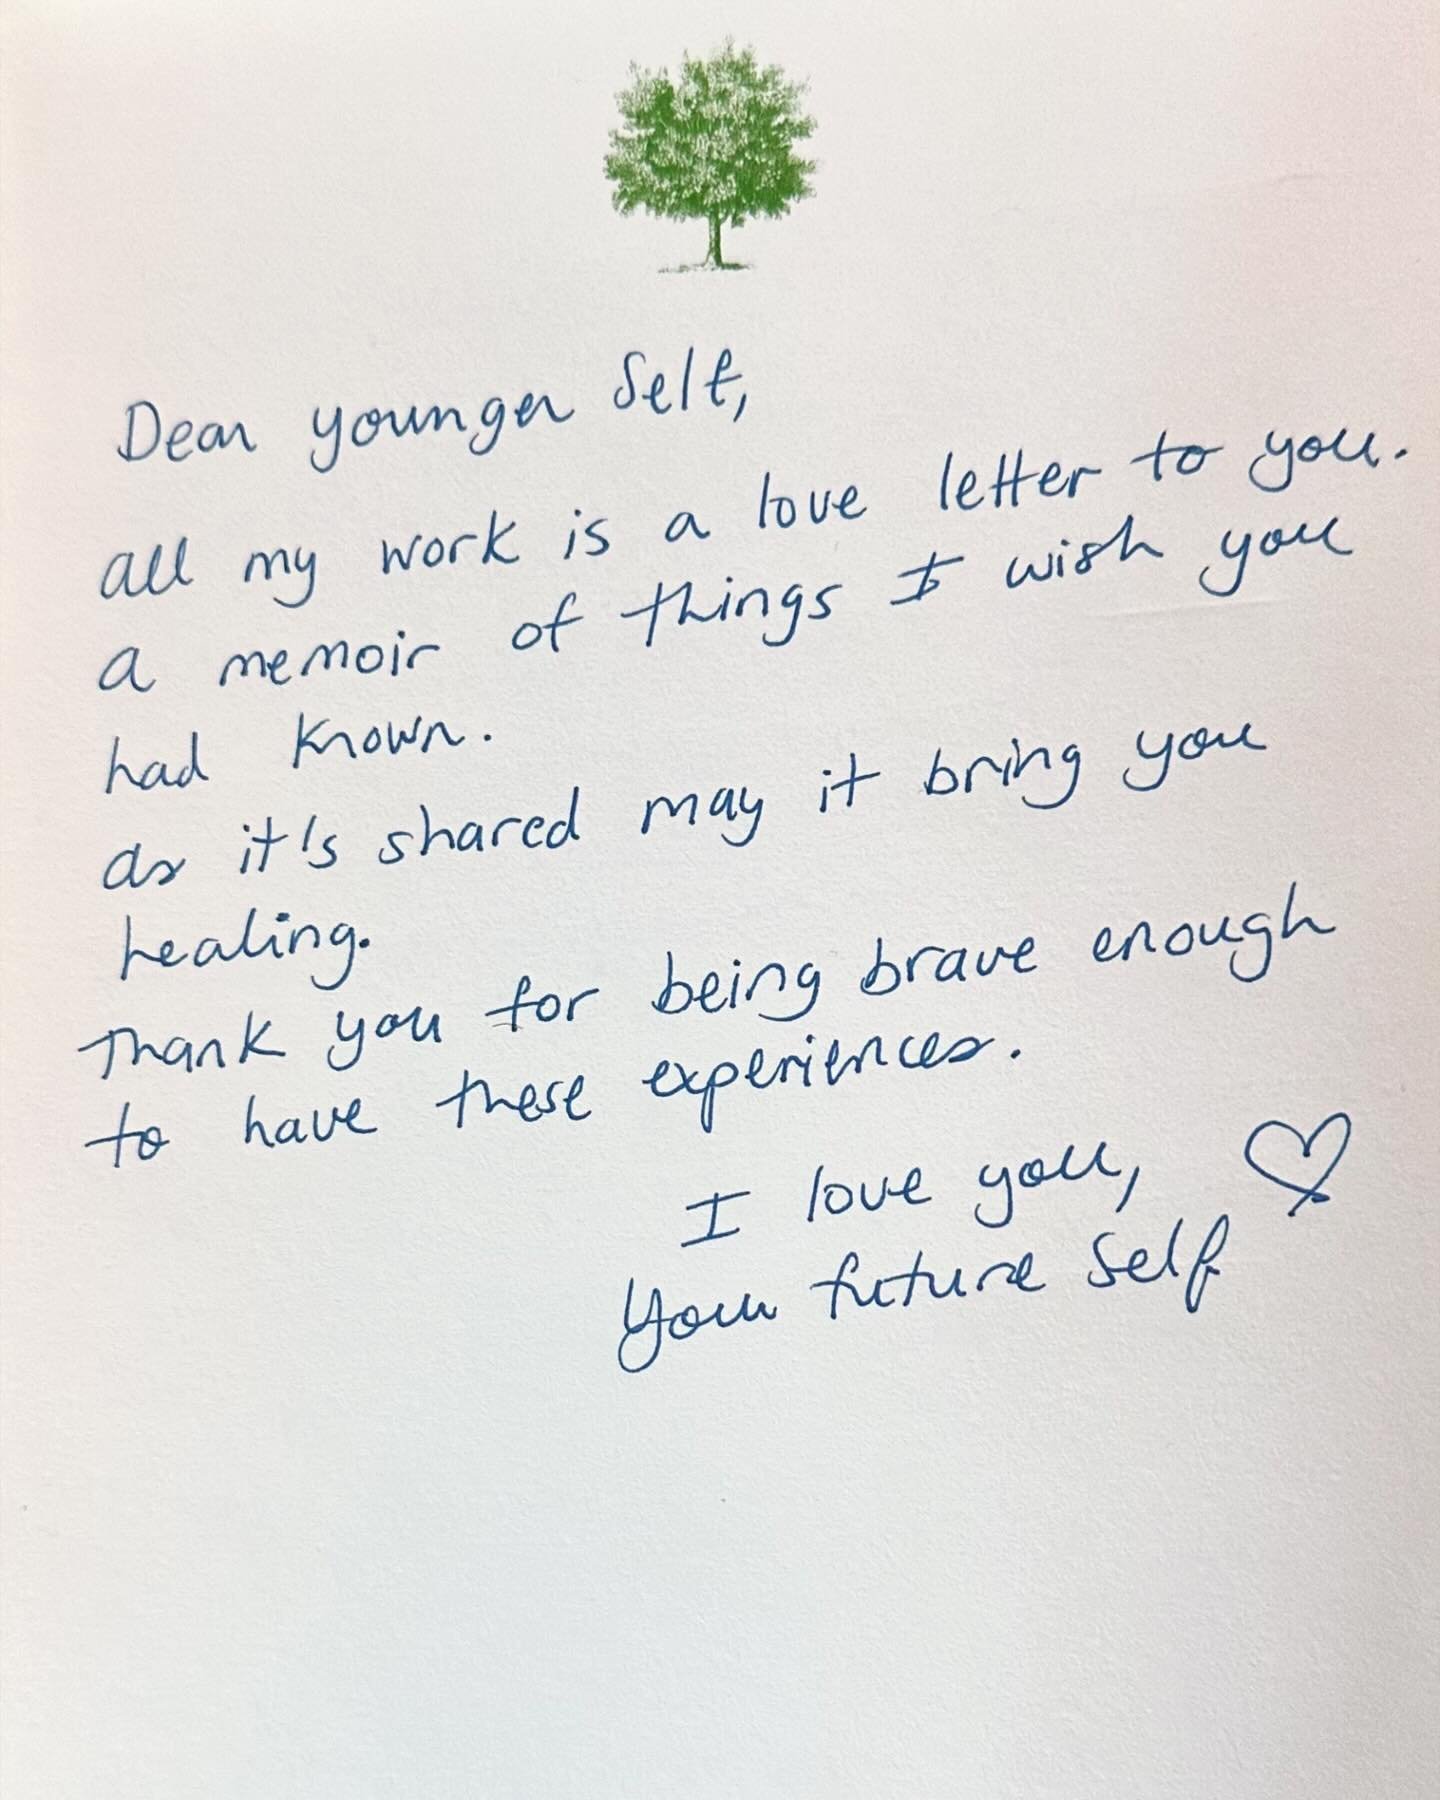 Dear younger Self,
all my work is a love letter to you.
a memoir of things I wish you
had known.
as it's shared may it bring you
healing.
Thank you for being brave enough
to have these experiences.
I love you,
Your future Self